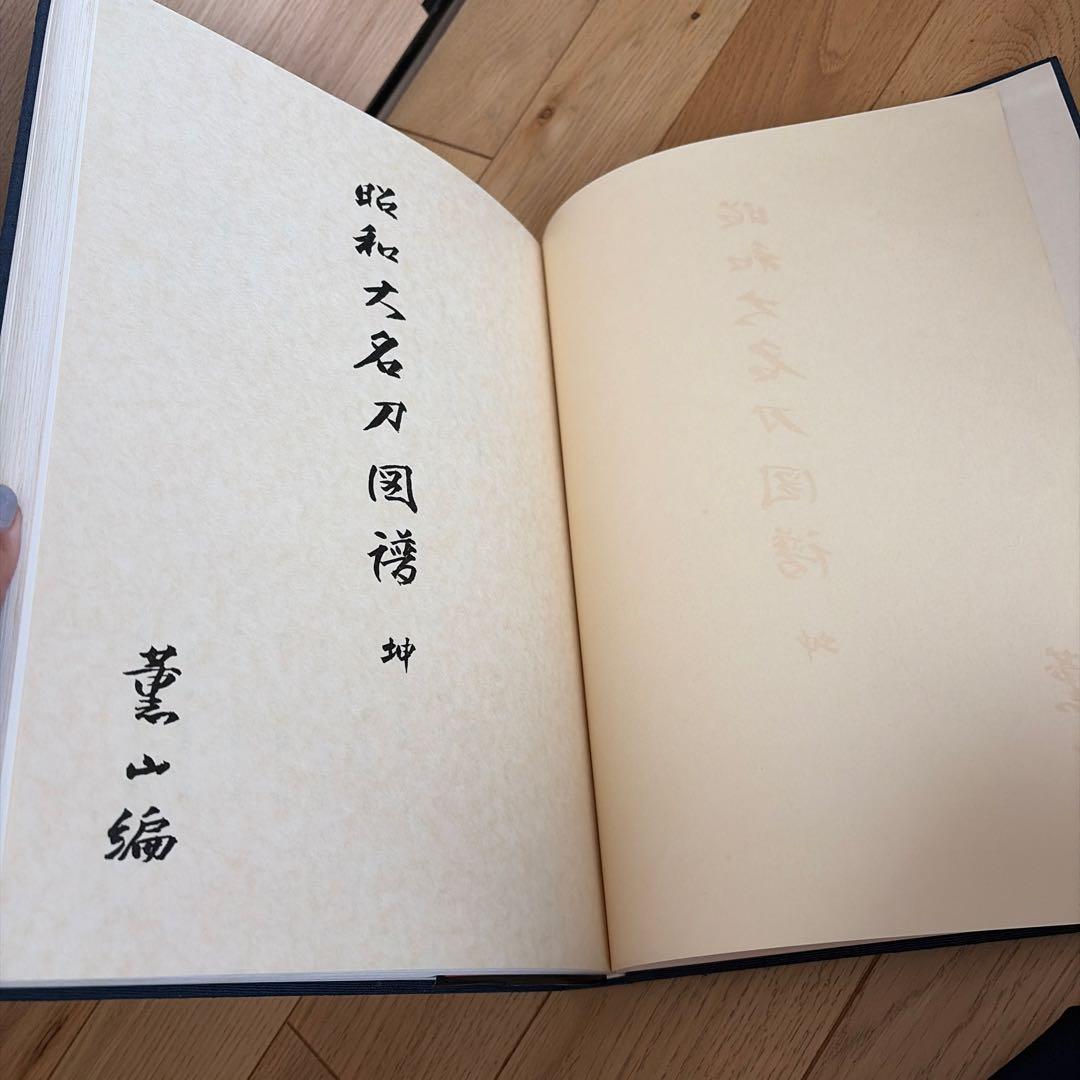 昭和大名刀図譜 坤
薫山編